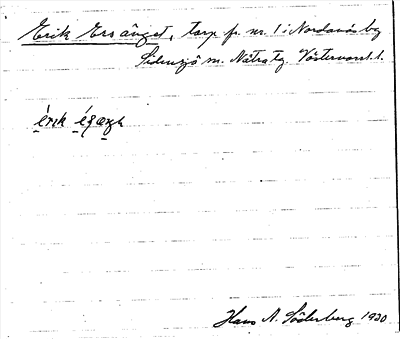 Erik Ersänget, torp fr. nr. 1 i Nordanås by
Sidensjö sn. Nätra tg. Västernorrl. l.
érik é
Hans A. Söderberg 1930